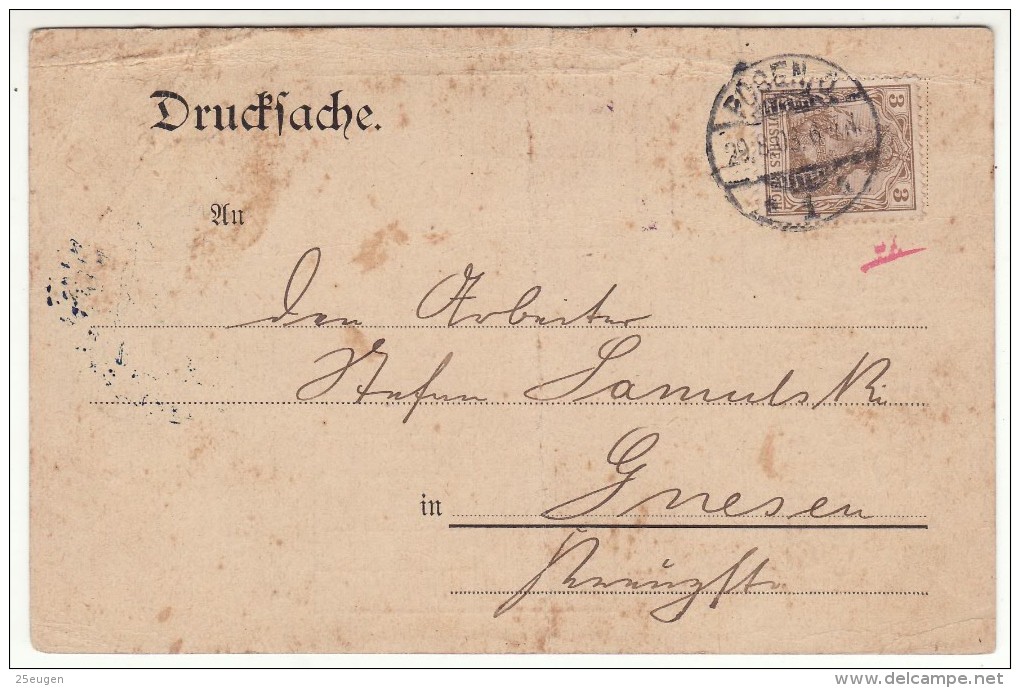 Drucksache.
POSEN
3 3
DEUTSCHES REICH
An
den Arbeiter
Stefan Samulski
in Gnesen
Kreuzstr
25eugen
delcampe.net